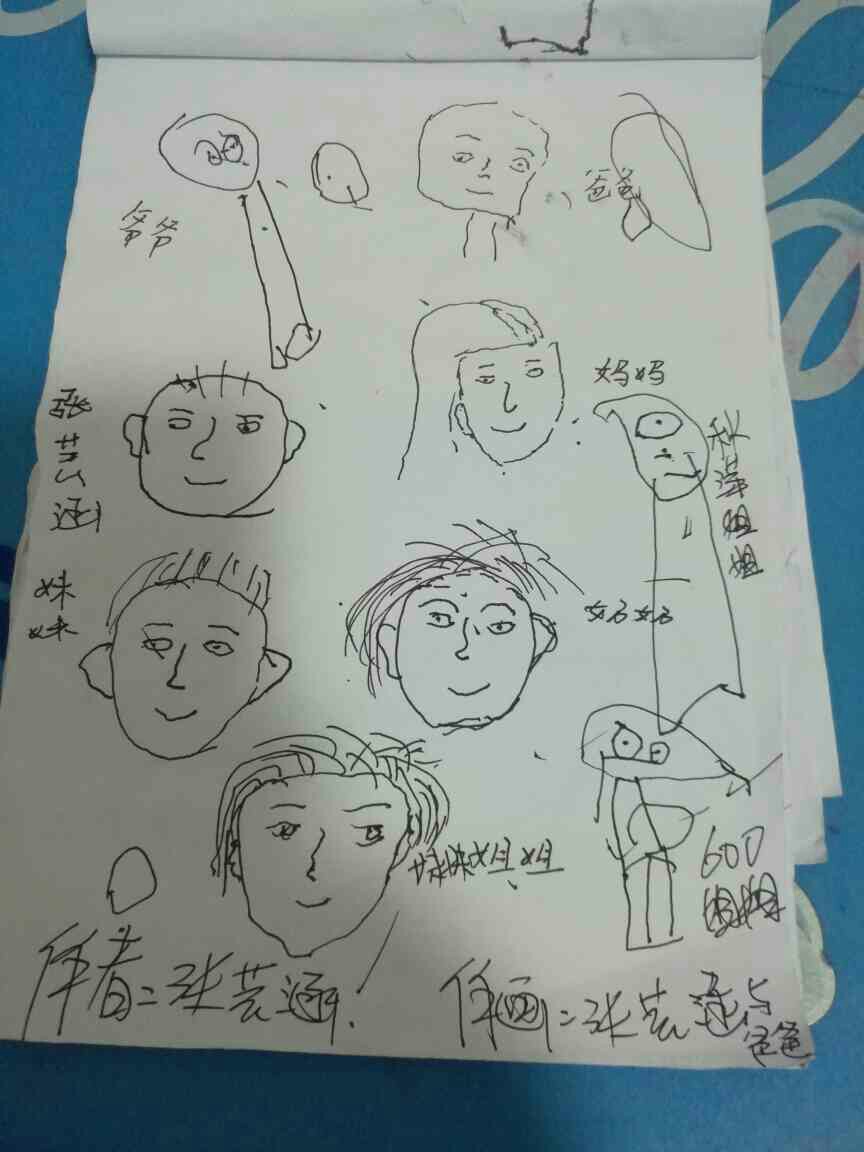 爷爷
爸爸
妈妈
张芸涵
秋萍姐姐
妹妹
妹妹姐姐
600
姐姐
作者：张芸涵
作画：张芸涵与
爸爸